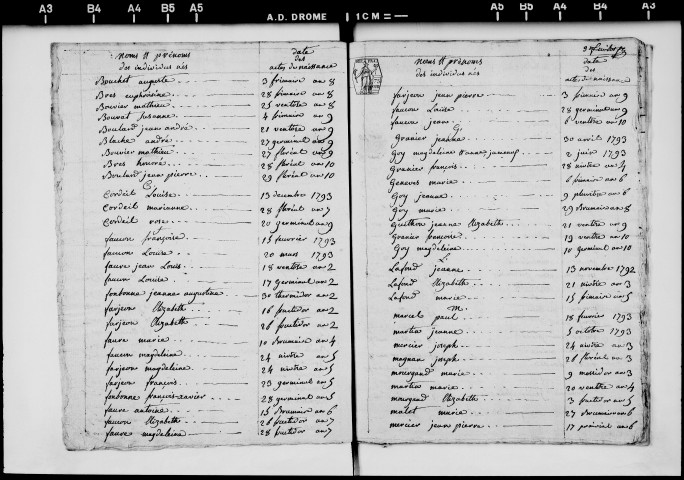 A3 B4 A4 B5 A5 A.D. DROME 1CM A5 B5 A4 B4 A3
noms et prénoms
des individus nés
date
des
actes de naissance
Bouchet auguste 3 frimaire an 8
Bres euphrosine 28 frimaire an 8
Bouvier mathieu 25 ventose an 8
Bouvat Susanne 4 frimaire an 9
Boulard jean andré 21 ventose an 9
Blache andré 27 germinal an 9
Bouvier mathieu 27 floréal an 9
Bres honoré 28 floréal an 10
Boulard jean pierre 29 floréal an 10
C
Cordeil Louise 13 decembre 1793
Cordeil marianne 28 floréal an 7
Cordeil rose 20 germinal an 9
faucon françoise 15 fevrier 1793
faucon Louise 20 mars 1793
faure jean Louis 18 ventose an 2
faucon Louise 17 germinal an 2
fonbonne jeanne augustine 30 thermidor an 2
farjeon Elizabeth 16 fructidor an 2
farjeon Elizabeth 26 fructidor an 2
faure marie 10 Brumaire an 4
faucon magdeleine 24 nivose an 5
farjeon magdeleine 24 nivose an 5
farjeon françois 23 germinal an 5
fonbonne françois xavier 28 germinal an 5
faure antoine 15 Brumaire an 6
faucon Elizabeth 26 fructidor an 7
faure magdeleine 28 fructidor an 7
noms et prénoms
des individus nés
date
des
actes de naissance
farjeon jean pierre 3 frimaire an 9
faucon Louise 28 germinal an 9
faucon jean 6 ventose an 10
G
Granier jeanne 30 avril 1793
Goy magdeleine 2 juin 1793
Granier françois 28 nivose an 4
Geneves marie 6 frimaire an 6
Goy jeanne 9 pluviose an 6
Goy marie 29 Brumaire an 8
Guitton jeanne Elizabeth 21 ventose an 9
Granier françoise 19 ventose an 10
Goy magdeleine 10 germinal an 10
L
Lafond jeanne 13 novembre 1792
Lafond Elizabeth 21 nivose an 3
Lafond marie 15 frimaire an 5
m
marcel paul 18 fevrier 1793
martin jeanne 5 octobre 1793
mercier joseph 24 nivose an 3
magnan joseph 26 floréal an 3
mourgand marie 9 messidor an 3
martin marie 20 ventose an 4
mourgand Elizabeth 3 fructidor an 5
malet marie 27 Brumaire an 6
mercier jean pierre 17 prairial an 6